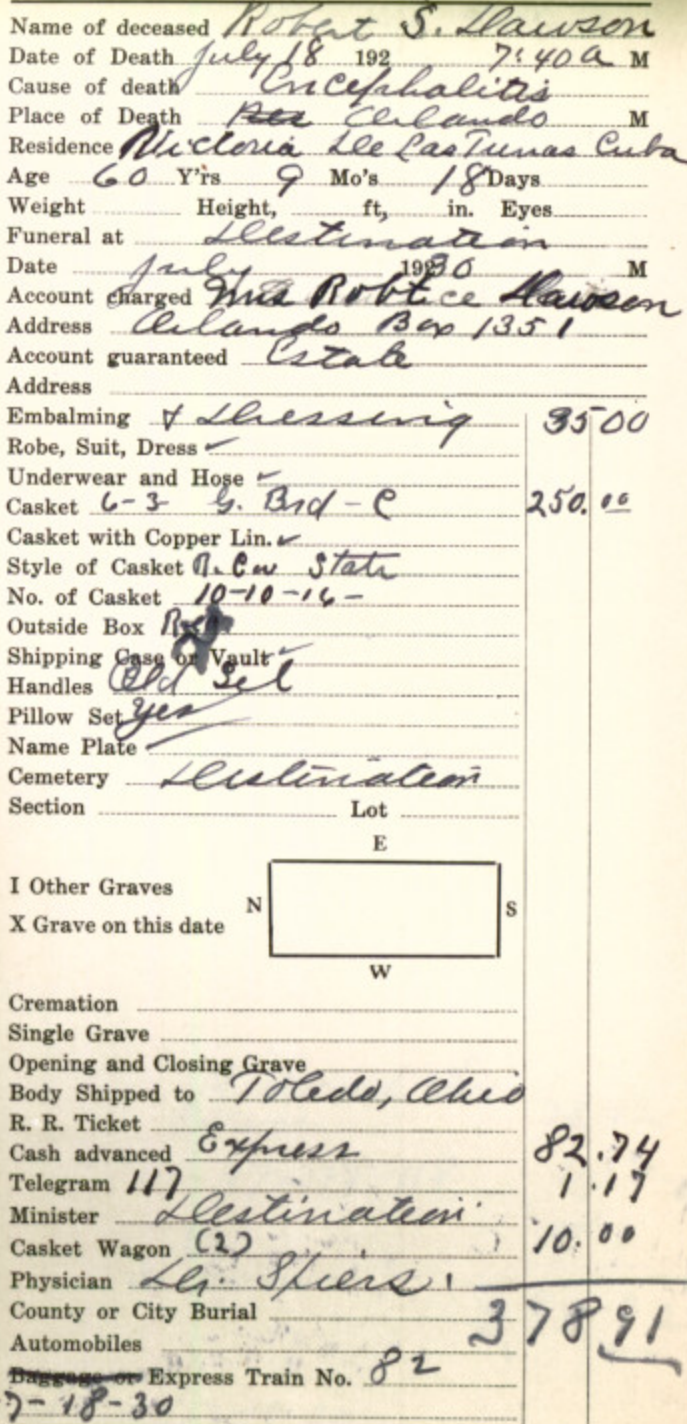 Name of deceased Robert S. Dawson
Date of Death July 18 192 7:40 a M
Cause of death Encephalitis
Place of Death Orlando M
Residence Victoria De Las Tunas Cuba
Age 60 Y'rs 9 Mo's 18 Days
Weight Height, ft, in. Eyes
Funeral at Destination
Date July 1930 M
Account charged Mrs Robt Dawson
Address Orlando Box 1351
Account guaranteed Estate
Address
Embalming & Dressing 35 00
Robe, Suit, Dress ✓
Underwear and Hose ✓
Casket 6-3 G. Brd - C 250.00
Casket with Copper Lin. ✓
Style of Casket State
No. of Casket 10-10-16-
Outside Box
Shipping Case or Vault ✓
Handles Old Sil
Pillow Set yes
Name Plate
Cemetery Destination
Section Lot
E
I Other Graves
N S
X Grave on this date
W
Cremation
Single Grave
Opening and Closing Grave
Body Shipped to Toledo, Ohio
R. R. Ticket
Cash advanced Express 82.74
Telegram 117 1.17
Minister Destination
Casket Wagon (2) 10.00
Physician Dr. Spiers.
County or City Burial 378 91
Automobiles
Baggage or Express Train No. 82
7-18-30